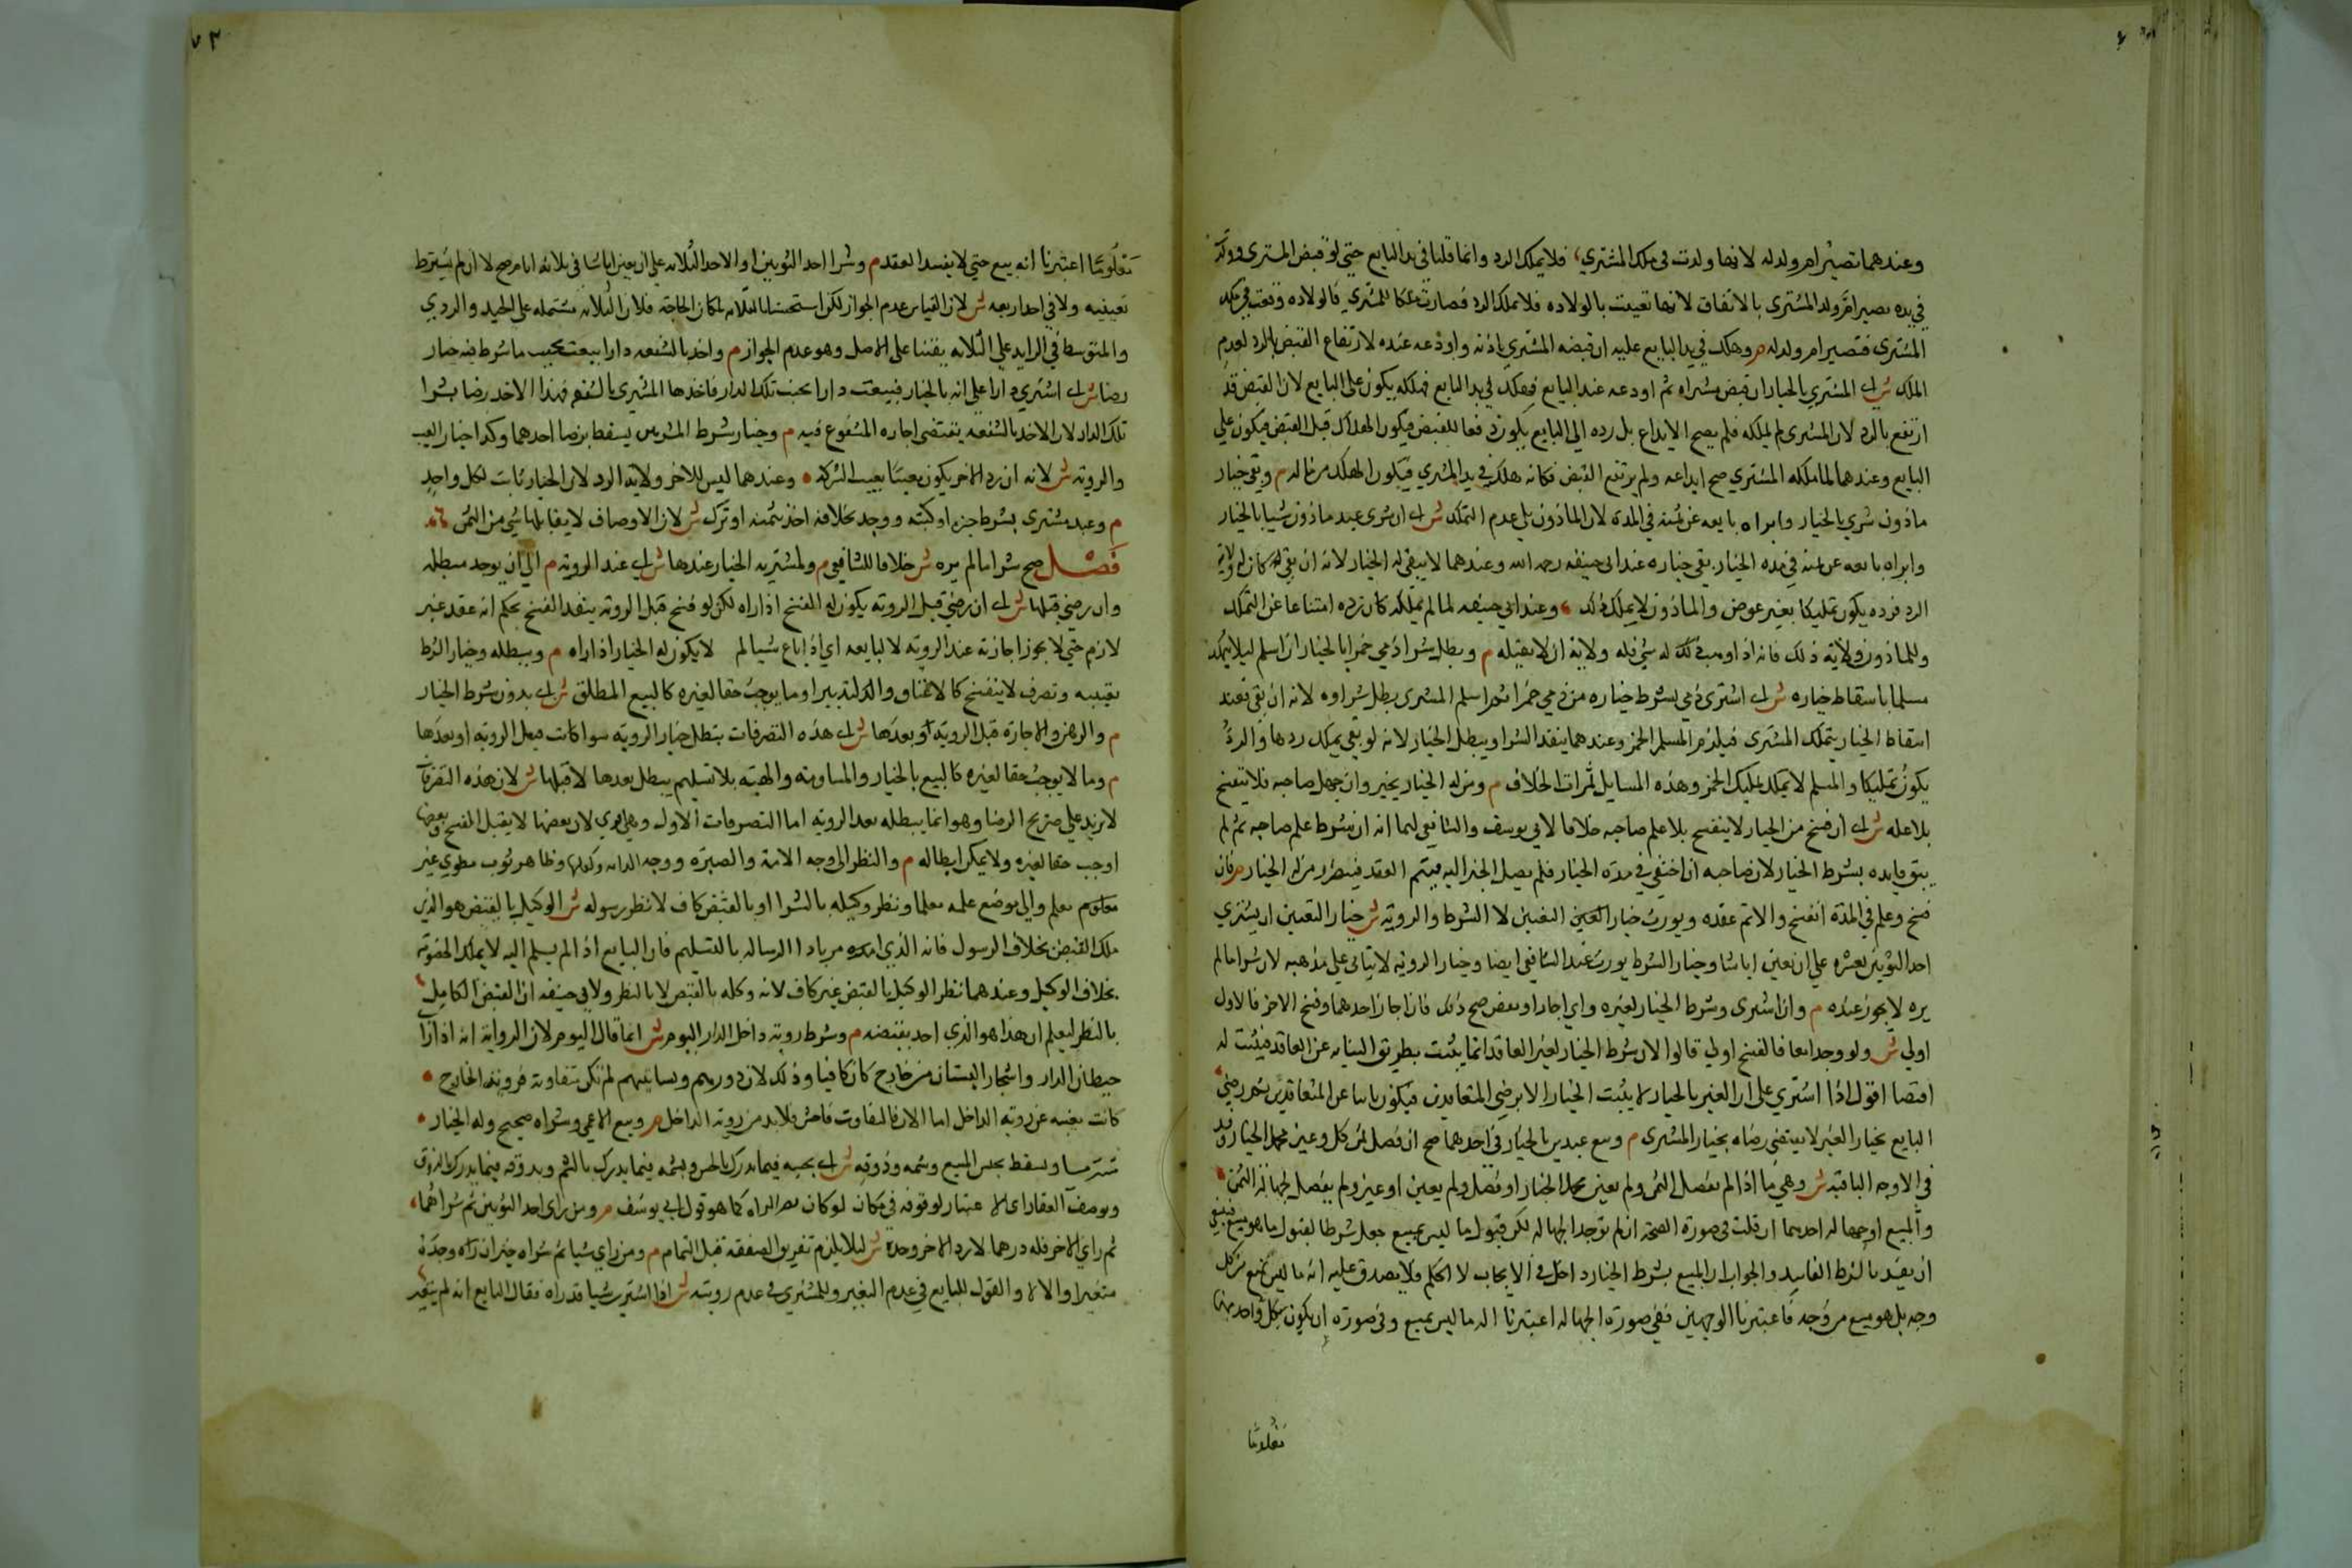 وعندهما تصير ام ولد له لانها ولدت في ملك المشتري، فلا يملك الرد وانما قلنا في يد البايع حتى لو قبض المشتري وولدت
في يده تصير ام ولد المشتري بالاتفاق لانها تعيبت بالولاده فلا يملك الرد فصارت ملكا للمشتري فالولاده وقعت في ملك
المشتري فتصير ام ولد له م وهلك في يد البايع عليه ان قبضه المشتري باذنه واودعه عنده لارتفاع القبض بالرد لعدم
الملك ش اى المشتري بالخيار ان قبض مشراه ثم اودعه عند البايع فهلك في يد البايع فهلكه يكون على البايع لان القبض قد
ارتفع بالرد لان المشتري لم يملكه فلم يصح الايداع بل رده الى البايع يكون رفعا للقبض فيكون الهلاك قبل القبض فيكون على
البايع وعندهما لما ملكه المشتري صح ايداعه ولم يرتفع القبض فكانه هلك في يد المشتري فيكون الهلك من ماله م وبقى خيار
ماذون شري بالخيار وابراه بايعه عن ثمنه في المدة لان الماذون يلي عدم التملك ش اى ان شرى عبد ماذون شيا بالخيار
وابراه بايعه عن ثمنه في مده الخيار بقى خياره عند ابي حنيفه رحمه الله وعندهما لا يبقى له الخيار لانه ان بقى له كان له ولاية
الرد فرده يكون تمليكا بغير عوض والماذون لا يملك ذلك، وعند ابي حنيفه لما لم يملكه كان رده امتناعا عن التملك
وللماذون ولاية ذلك فانه اذا وهب له شي فله ولاية ان لا يقبله م وبطل شرا ذمي من ذمي خمرا بالخيار ان اسلم ليلا يتملكه
مسلما باسقاط خياره ش اى اشترى ذمي بشرط خياره من ذمي خمرا ثم اسلم المشترى بطل شراوه لانه ان بقى فعند
اسقاط الخيار يتملك المشترى فيلزم تملك المسلم الخمر وعندهما ينفذ الشرا ويبطل الخيار لانه لو بقى يملك ردها والرد
يكون تمليكا والمسلم لا يملك تمليك الخمر وهذه المسايل ثمرات الخلاف م ومن له الخيار يجيز وان جهل صاحبه فلا يفسخ
بلا علمه ش اى ان فسخ من له الخيار لا ينفسخ بلا علم صاحبه خلافا لابي يوسف والشافعي لهما انه ان شرط علم صاحبه لم
يبق فايده بشرط الخيار لان صاحبه ان اختفى في مدة الخيار فلم يصل الخبر اليه فيتم العقد فيتضرر من له الخيار م فان
فسخ وعلم في المدة انفسخ والا تم عقده ويورث خيار العيب والتعيين لا الشرط والروية ش خيار التعيين ان يشتري
احد الثوبين بعشره على ان يعين ايا شا وخيار الشرط يورث عند الشافعي ايضا وخيار الرويه لا يتاتى على مذهبه لان شرا ما لم
يره لا يجوز عنده م وان اشترى وشرط الخيار لغيره واي اجاز او نقض صح ذلك فان اجاز احدهما وفسخ الاخر فالاول
اولى ش ولو وجدا معا فالفسخ اولى قالوا لان شرط الخيار لغير العاقد انما يثبت بطريق النيابه عن العاقد فيثبت له
اقتضا اقول اذا اشتري على ان الغير بالخيار لا يثبت الخيار الا برضى المتعاقدين فيكون نايبا عن المتعاقدين ثم رضى
البايع بخيار الغير لا يقتضى رضاه بخيار المشترى م وبيع عبدين بالخيار في احدهما صح ان فصل ثمن كل وعين محل الخيار وفسد
في الاوجه الباقيه ش وهي ما اذا لم يفصل الثمن ولم يعين محل الخيار او فصل ولم يعين او عين ولم يفصل لجهالة الثمن
والمبيع او جهالة احدهما ان قلت في صورة الصحة ان لم توجد الجهاله لكن قبول ما ليس بمبيع جعل شرطا لقبول ما هو مبيع فينبغي
ان يفسد بالشرط الفاسد والجواب ان المبيع بشرط الخيار داخل في الايجاب لا الحكم ولا يصدق عليه انه ما ليس بمبيع من كل
وجه بل هو مبيع من وجه فاعتبرنا الوجهين ففي صورة الجهاله اعتبرنا انه ما ليس بمبيع وفى صورة ان يكون كل واحد منهما
معلوما
٧٣
معلوما اعتبرنا انه بيع حتى لا يفسد العقد م وشرا احد الثوبين او الاحد الثلاثه على ان يعين ايا شا في ثلاثه ايام صح لا ان لم يشترط
تعيينه ولا في احد اربعه ش لان القياس عدم الجواز لكن استحسنا بالثلاثه لمكان الحاجة فلان الثلاثه مشتمله على الجيد والردي
والمتوسط في الزايد على الثلاثه بقينا على الاصل وهو عدم الجواز م واخذ بالشفعه دارا بيعت بجنب ما شرط فيه خيار
رضا ش اى اشترى دارا على انه بالخيار فبيعت دارا بجنب تلك الدار فاخذها المشترى بالشفعه فهذا الاخذ رضا بشرا
تلك الدار لان الاخذ بالشفعه يقتضى اجاره المشفوع فيه م وخيار شرط المشتريين يسقط برضا احدهما وكذا خيار العيب
والروية ش لانه ان رده الاخر يكون معيبا بعيب الشركة • وعندهما ليس للاخر ولاية الرد لان الخيار ثابت لكل واحد
م وعبد مشترى بشرط خبزه او كتبته ووجد بخلافه اخذ بثمنه او ترك ش لان الاوصاف لا يقابلها شي من الثمن
فصل صح شرا ما لم يره ش خلافا للشافعي م ولمشتريه الخيار عندها ش اى عند الرويه م الى ان يوجد مبطله
وان رضي قبلها ش اى ان رضي قبل الرويه يكون له الفسخ اذا راه لكن لو فسخ قبل الرويه ينفذ الفسخ بحكم انه عقد غير
لازم حتى لا يجوز اجازته عند الرويه لا لبايعه اي اذا باع شيا لم لا يكون له الخيار اذا راه م ويبطله وخيار الشرط
تعيبه وتصرف لا ينفسخ كالاعتاق والتدبير او ما يوجب حقا لغيره كالبيع المطلق ش اى بدون شرط الخيار
م والرهن والاجارة قبل الروية او بعدها ش اى هذه التصرفات يبطل خيار الرويه سوا كانت قبل الرويه او بعدها
م وما لا يوجب حقا لغيره كالبيع بالخيار والمساومه والهبة بلا تسليم يبطل بعدها لا قبلها ش لان هذه التصرفات
لا تزيد على صريح الرضا وهو انما يبطله بعد الرويه اما التصرفات الاول وهي اقوى لان بعضها لا يقبل الفسخ وبعضها
اوجب حقا لغيره ولا يمكن ابطاله م والنظر الى وجه الامة والصبرة ووجه الدابه وكفلها وظاهر ثوب مطوي غير
معلم والى موضع علمه معلما ونظر وكيله بالشرا او بالقبض كاف لا نظر رسوله ش الوكيل بالقبض هو الذي
ملك القبض بخلاف الرسول فانه الذي امره باداء الرساله بالتسليم فان البايع اذا لم يسلم اليه لا يملك الخصومه
بخلاف الوكيل وعندهما نظر الوكيل بالقبض غير كاف لانه وكله بالقبض لا بالنظر ولابي حنيفه ان القبض الكامل
بالنظر ليعلم ان هذا هو الذي امر بقبضه م وشرط روية داخل الدار اليوم ش انما قال اليوم لان الرواية انه اذا راى
حيطان الدار واشجار البستان من خارج كان كافيا وذلك لان دورهم وبساتينهم لم تكن متفاوتة فروية الخارج •
كانت مغنيه عن روية الداخل اما الان فالتفاوت فاحش فلا بد من روية الداخل م وبيع الاعمى وشراه صحيح وله الخيار •
مشتريا ويسقط بجس المبيع وشمه وذوقه ش اى بجسه فيما يدرك بالجس وبشمه فيما يدرك بالشم وبذوقه فيما يدرك بالذوق
وبوصف العقار اى لا اعتبار لوقوفه في مكان لو كان بصيرا لراه كما هو قول ابي يوسف م ومن راى احد الثوبين ثم شراهما،
ثم راى الاخر فله ردهما لا رد الاخر وحده ش ليلا يلزم تفريق الصفقة قبل التمام م ومن راى شيا ثم شراه خير ان راه وجده
متغيرا والا لا والقول للبايع في عدم التغير وللمشتري في عدم رويته ش اذا اشترى شيا قد راه فقال البايع انه لم يتغير